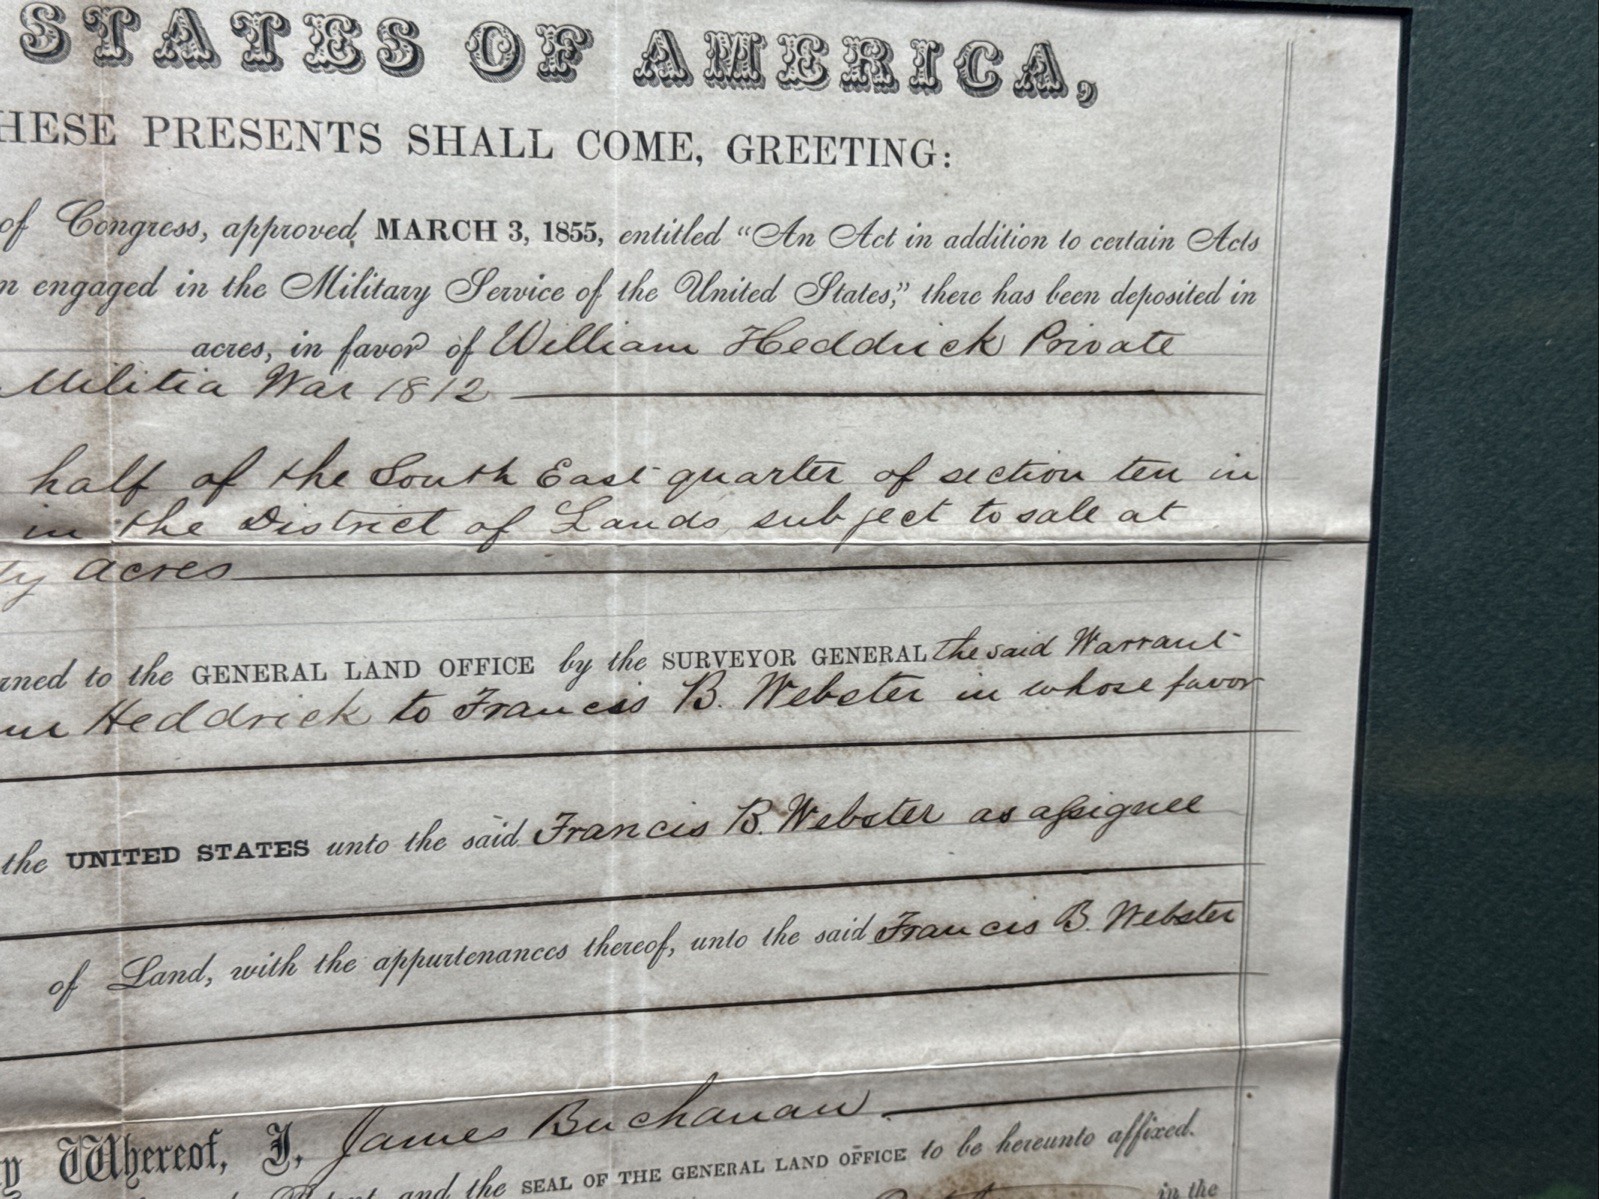 STATES OF AMERICA,
HESE PRESENTS SHALL COME, GREETING:
of Congress, approved, MARCH 3, 1855, entitled "An Act in addition to certain Acts
n engaged in the Military Service of the United States," there has been deposited in
acres, in favor of William Heddrick Private
Militia War 1812
half of the South East quarter of section ten in
in the District of Lands subject to sale at
ty acres
rned to the GENERAL LAND OFFICE by the SURVEYOR GENERAL the said Warrant
Heddrick to Francis B. Webster in whose favor
the UNITED STATES unto the said Francis B. Webster as assignee
of Land, with the appurtenances thereof, unto the said Francis B. Webster
y Whereof, I, James Buchanan
and the SEAL OF THE GENERAL LAND OFFICE to be hereunto affixed.
in the